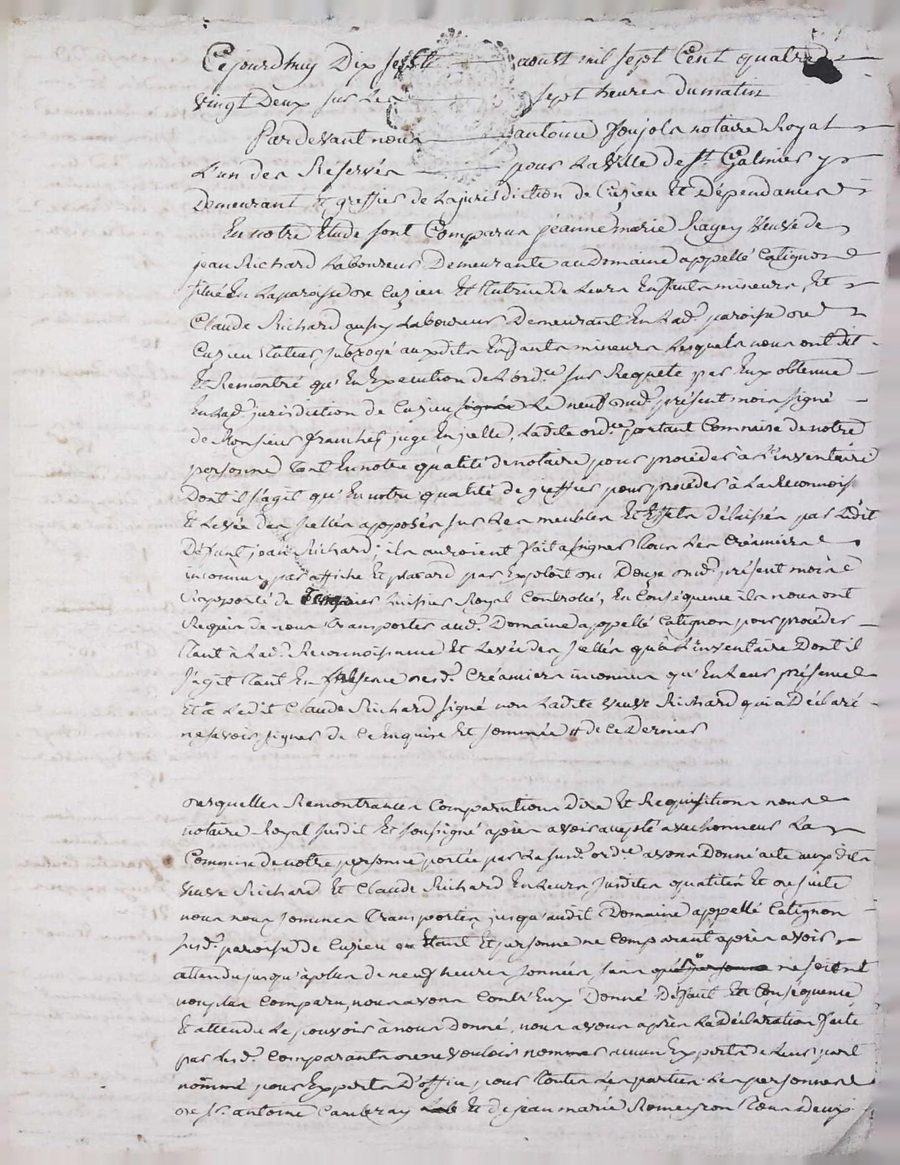 Cejourdhuy Dix sept aoust mil sept Cent quatre
vingt Deux sur les sept heures du matin
Pardevant nous antoine Joujols notaire Royal
L'un des Reservés pour La ville de St. Galmier y
Demeurant et greffier de La jurisdiction de Cuzieu Et Dépendances
En notre Etude sont Comparus jeanne marie Veuve de
jean Richard Laboureur Demeurante au Domaine appellé Catignon
situé En La paroisse de Cuzieu Et tutrice de Leurs Enfants mineurs, Et
Claude Richard aussy Laboureur Demeurant En Lad. paroisse de
Cuzieu tuteur subrogé auxdits Enfants mineurs Lesquels nous ont dit
Et Remontré qu'En Execution de L'ord.ce sur Requete par Eux obtenue
En Lad. jurisdiction de Cuzieu Le neuf dud. présent mois signé
de Monsieur franchet juge En jcelle, Ladite ord.ce portant Commise de notre
personne tant En notre qualité de notaire pour procéder à L'inventaire
Dont il s'agit qu'En notre qualité de greffier pour procéder à La Reconnoiss
Et Levée des scellés apposés sur Les meubles Et Effets délaissés par Ledit
Défunt jean Richard; ils auroient fait assigner tous Les Créanciers
inconnus par affiche Et placard par Exploit du Douze dud. présent mois
Raporté de huissier Royal Controllé, En Conséquence ils nous ont
Requis de nous transporter aud. Domaine appellé Catignon pour procéder
tant à Lad. Reconnoissance Et Levée des scellés qu'à L'inventaire Dont il
s'agit tant En présence desd. Créanciers inconnus qu'En Leur présence
Et a Ledit Claude Richard signé non Ladite veuve Richard qui a Déclaré
ne sçavoir signer de Ce Enquise Et sommée de Ce Dernier
Desquelles Remontrances Comparutions Dire Et Requisitions nous
notaire Royal susdit Et soussigné après avoir accepté avec honneur La
Commise de notre personne portée par La susd. ord.ce avons Donné acte auxdits
veuve Richard Et Claude Richard En Leurs susdites qualités Et de suite
nous nous sommes transportés jusqu'audit Domaine appellé Catignon
susd. paroisse de Cuzieu ou Etant Et personne ne Comparant après avoir
attendu jusqu'à plus de neuf heures sonnées sans que ne soient
non plus Comparu, nous avons Contr'Eux Donné Défaut En Conséquence
Et attendu Le pouvoir à nous Donné, nous avons après La Déclaration faite
par Lesd. Comparants de ne vouloir nommer aucun Experts de Leur part
nommé pour Experts D'office pour toutes Les parties Les personnes
de Sr. antoine Cambray Et de jean marie Romeyron tous Deux